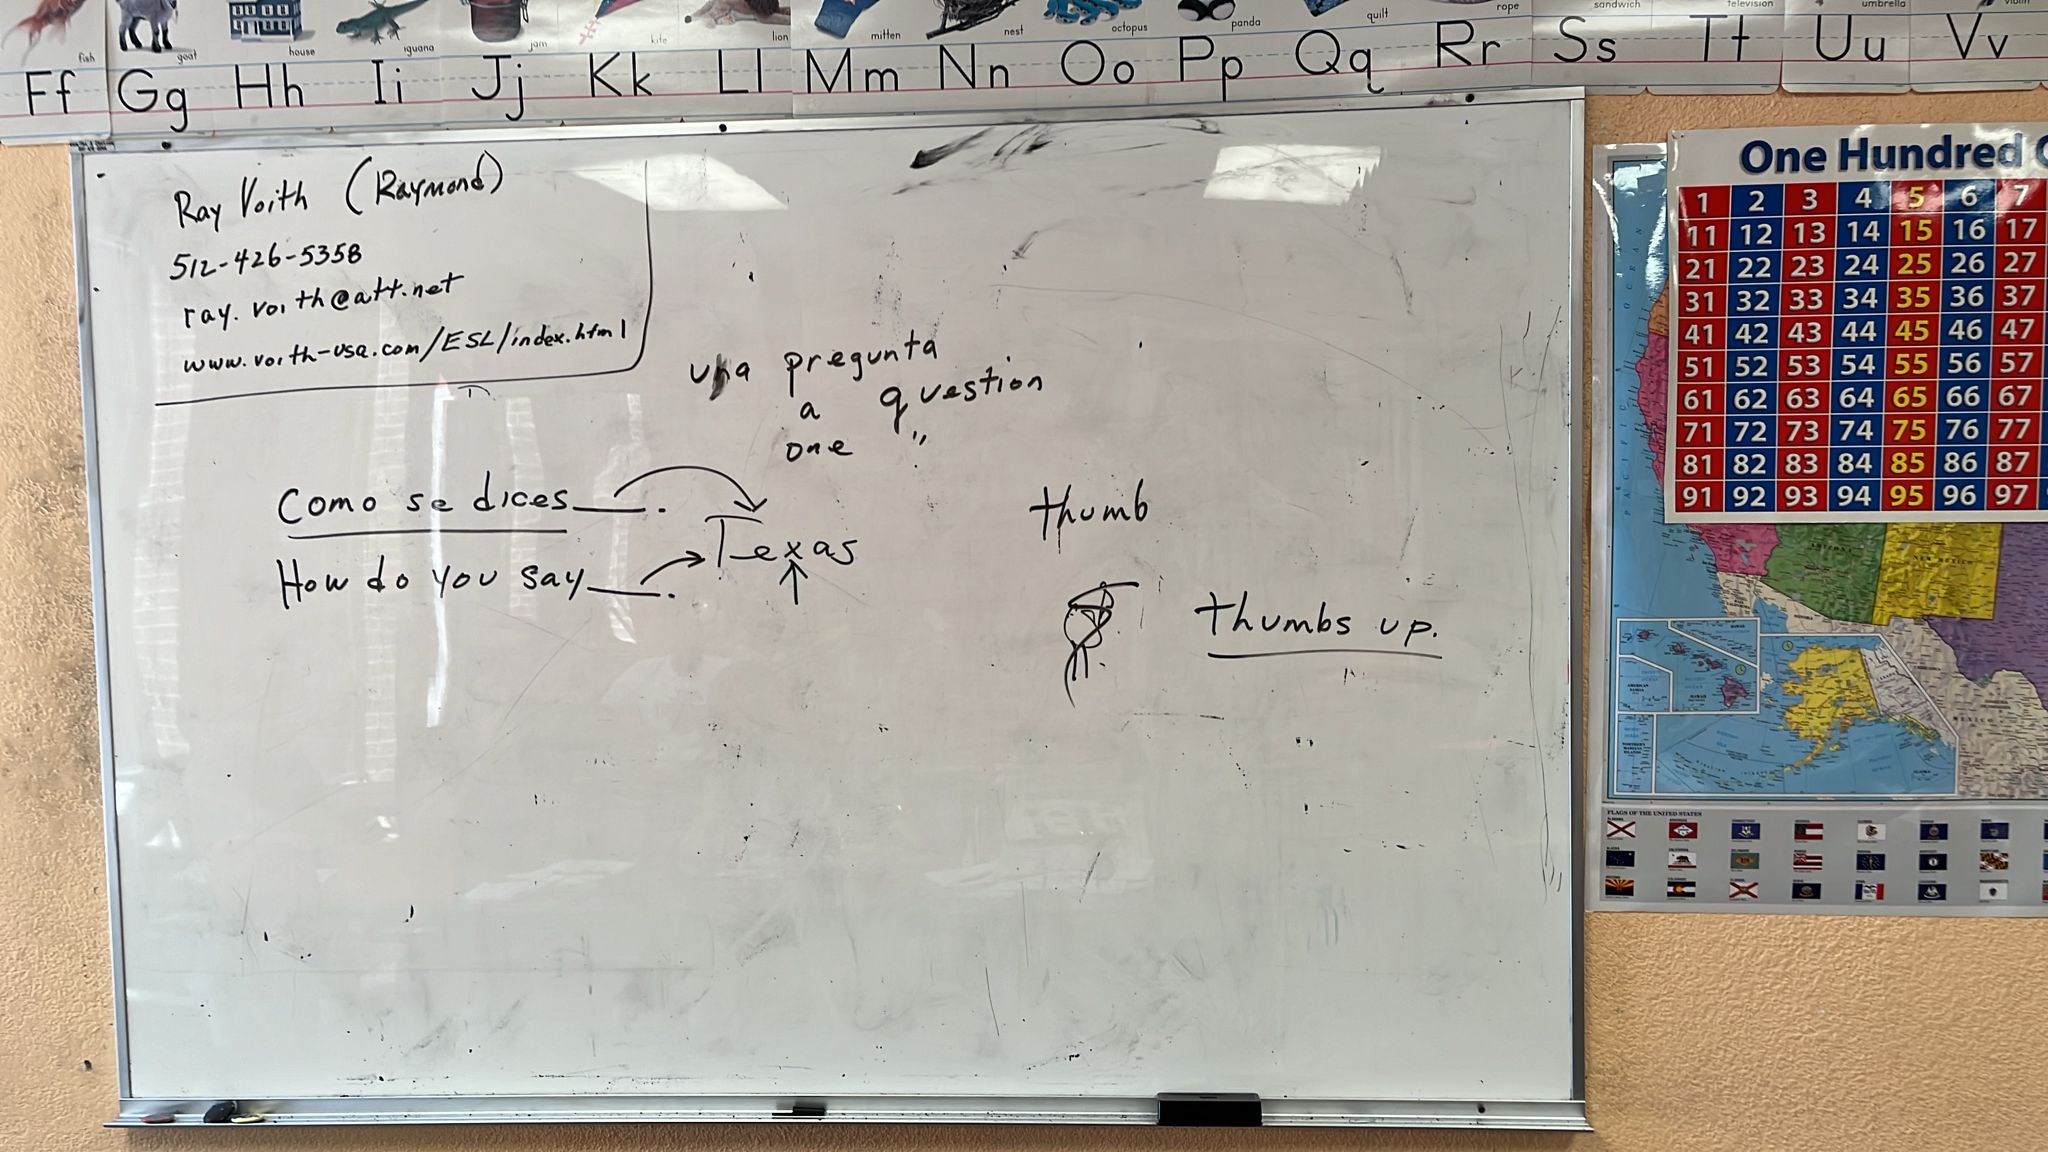 fish goat house iguana jam kite lion mitten nest octopus panda quilt rope sandwich television umbrella violin
Ff Gg Hh Ii Jj Kk Ll Mm Nn Oo Pp Qq Rr Ss Tt Uu Vv
Ray Voith (Raymond)
512-426-5358
ray.voith@att.net
www.voith-usa.com/ESL/index.html
una pregunta
a question
one "
Como se dices____.
How do you say____.
Texas
thumb
thumbs up.
One Hundred
1 2 3 4 5 6 7
11 12 13 14 15 16 17
21 22 23 24 25 26 27
31 32 33 34 35 36 37
41 42 43 44 45 46 47
51 52 53 54 55 56 57
61 62 63 64 65 66 67
71 72 73 74 75 76 77
81 82 83 84 85 86 87
91 92 93 94 95 96 97
ARIZONA
NEW MEXICO
FLAGS OF THE UNITED STATES